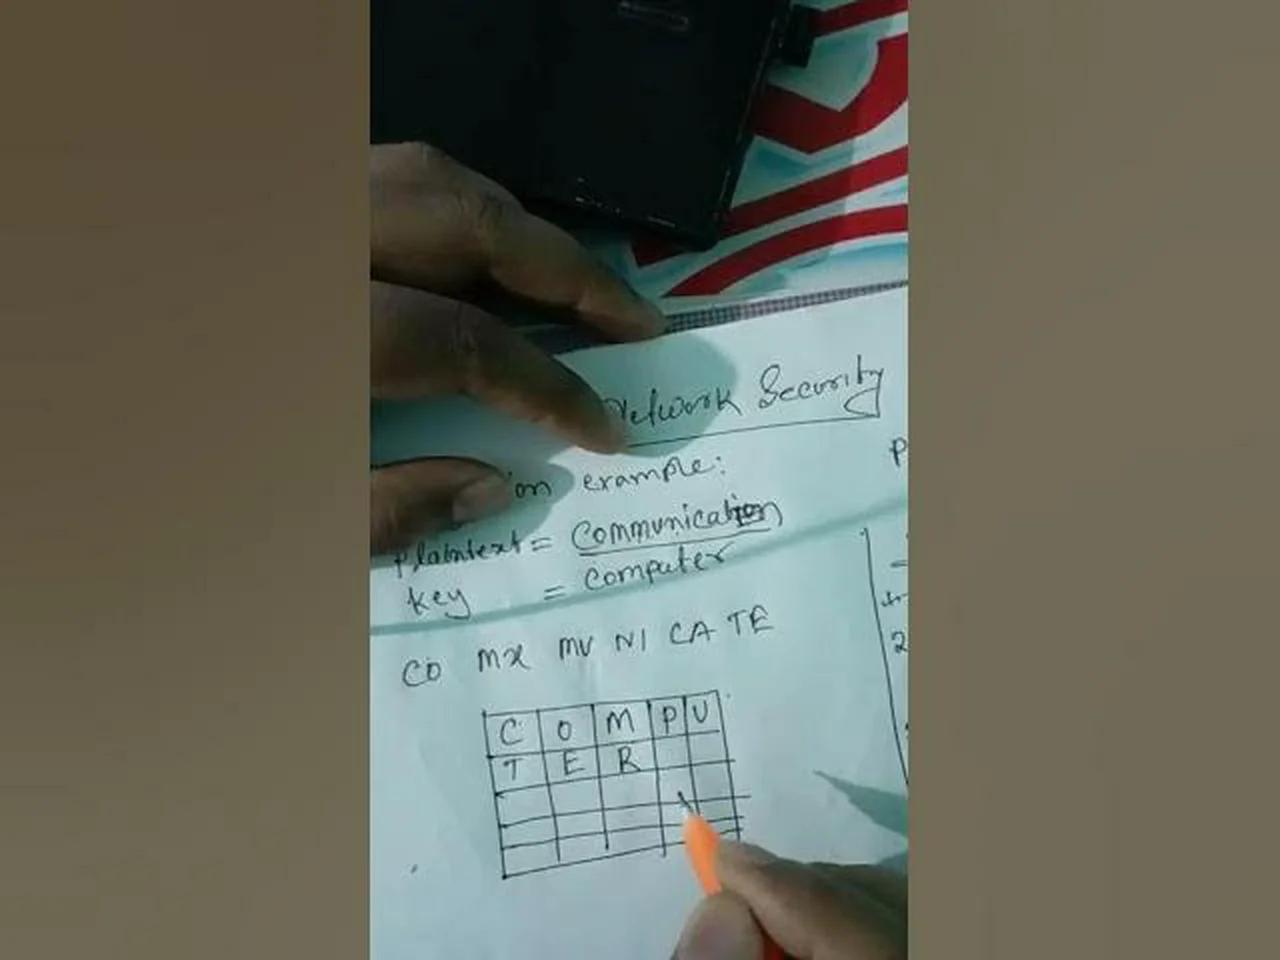 Network Security
ion example:
Plaintext = Communication
key = Computer
CO MX MU NI CA TE
C O M P U
T E R
P
2